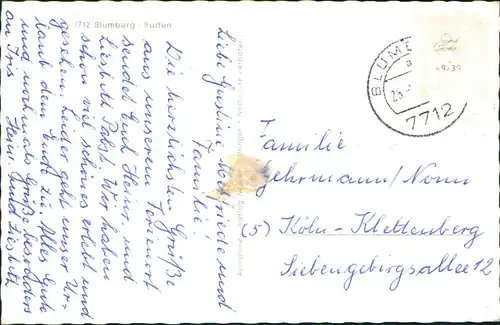 7712 Blumberg - Süden
Liebe Gustine, Wilfriede und
Familie!
Die herzlichsten Grüße
aus unserem Ferienort
sendet Euch Heinr. und
Liesbeth Pabst. Wir haben
schon viel schönes erlebt und
gesehen. Leider geht unser Ur-
laub dem Ende zu. Alles Gute
und nochmals Grüße besonders
an Iris Heinr. und Liesbeth
BLUMB
7712
Familie
Gehrmann/Nonn
(5) Köln-Klettenberg
Siebengebirgsallee 12